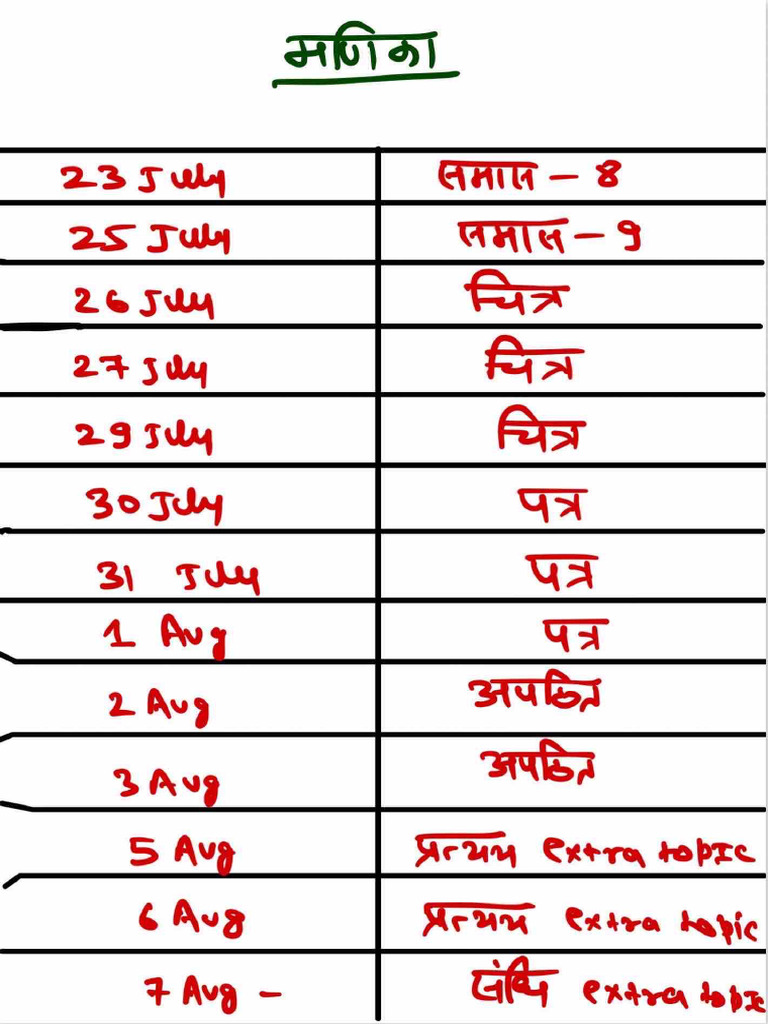 मणिका
23 July समास - 8
25 July समास - 9
26 July चित्र
27 July चित्र
29 July चित्र
30 July पत्र
31 July पत्र
1 Aug पत्र
2 Aug अपठित
3 Aug अपठित
5 Aug प्रत्यय extra topic
6 Aug प्रत्यय extra topic
7 Aug - संधि extra topic